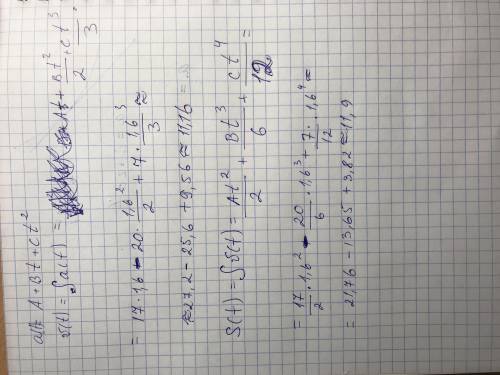 a(t) = A + Bt + Ct²
v(t) = ∫a(t) = At + Bt²/2 + Ct³/3 =
= 17 · 1,6 - 20 · 1,6²/2 + 7 · 1,6³/3 ≈
≈ 27,2 - 25,6 + 9,56 ≈ 11,16 =
S(t) = ∫v(t) = At²/2 + Bt³/6 + Ct⁴/12 =
= 17/2 · 1,6² - 20/6 · 1,6³ + 7/12 · 1,6⁴ ≈
= 21,76 - 13,65 + 3,82 ≈ 11,9